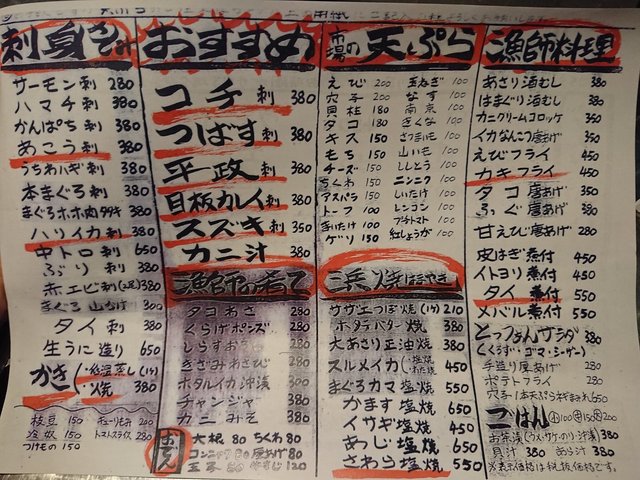 刺身
サーモン刺 280
ハマチ刺 380
かんぱち刺 380
あこう刺 380
うちわハギ刺 380
本まぐろ刺 380
まぐろホホ肉タタキ 380
ハリイカ刺 380
中トロ刺 650
ぶり刺 380
赤エビ刺
まぐろ山かけ
タイ刺 380
生うに造り 650
かき
焼 380
枝豆 150
冷奴 150
つけもの 150
キューリもみ 200
トマトスライス 280
おすすめ
コチ刺 380
つばす刺 380
平政刺 380
目板カレイ刺 380
スズキ刺 350
カニ汁 280
漁師の
タコわさ 280
くらげポンズ 280
しらすおろし 280
きざみわさび 280
ホタルイカ沖漬 280
チャンジャ 280
カニみそ 380
おでん
大根 80 ちくわ 80
コンニャク 80 厚あげ 80
玉子 80 牛すじ 120
市場の天ぷら
えび 200
穴子 200
貝柱 180
タコ 180
キス 150
もち 150
チーズ 150
ちくわ 150
アスパラ 150
トーフ 100
まいたけ 100
ゲソ 150
玉ねぎ 100
なす 100
南京 100
きくな 100
さつまいも 100
山いも 100
ししとう 100
ニンニク 100
しいたけ 100
レンコン 100
プチトマト 100
紅しょうが 100
浜焼
サザエつぼ焼 210
ホタテバター焼 380
大あさり正油焼 380
スルメイカ 450
まぐろカマ塩焼 380
かます塩焼 650
イサギ塩焼 450
あじ塩焼 650
さわら塩焼 550
漁師料理
あさり酒むし 380
はまぐり酒むし 380
カニクリームコロッケ 350
イカなんこつ唐あげ 350
えびフライ 450
カキフライ 450
タコ唐あげ 350
ふぐ唐あげ 380
甘えび唐あげ 280
皮はぎ煮付 450
イトヨリ煮付 450
タイ煮付 550
メバル煮付 550
とっつぁんサラダ 380
手造り厚あげ 380
ポテトフライ 280
ごはん 小100 中150 大200
お茶漬(ウメ・サケ・のり・沖漬) 380
貝汁 380 あら汁 380
※表示価格は税抜価格です。